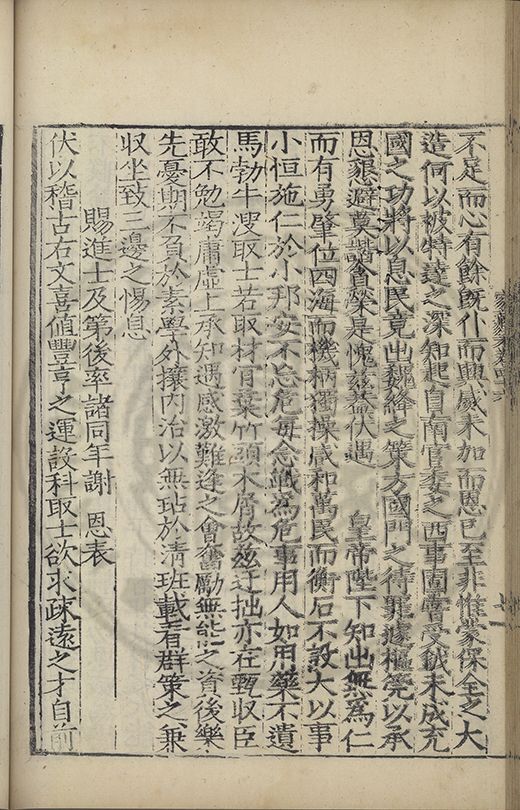 不足而心有餘旣仆而興歲未加而恩已至非惟蒙保全之大
造何以被特達之深知起自南官委之西事閫嘗受鉞未成充
國之功將以息民竟出魏絳之策方國門之待罪據樞筦以承
恩懇避莫諧貪榮是愧茲蓋伏遇 皇帝陛下知出無爲仁
而有勇肇位四海而機柄獨操咸和萬民而衡石不設大以事
小恒施仁於小邦安不忘危毋念職爲危事用人如用藥不遺
馬勃牛溲取士若取材官葉竹頭木屑故茲迂拙亦在甄收臣
敢不勉竭庸虛上承知遇感激難逢之會奮勵無能之資後樂
先憂期不負於素學外攘内治以無玷於清班載看群策之兼
収坐致三邊之惕息
賜進士及第後率諸同年謝 恩表
伏以稽古右文喜値豐亨之運設科取士欲求疎遠之才自前